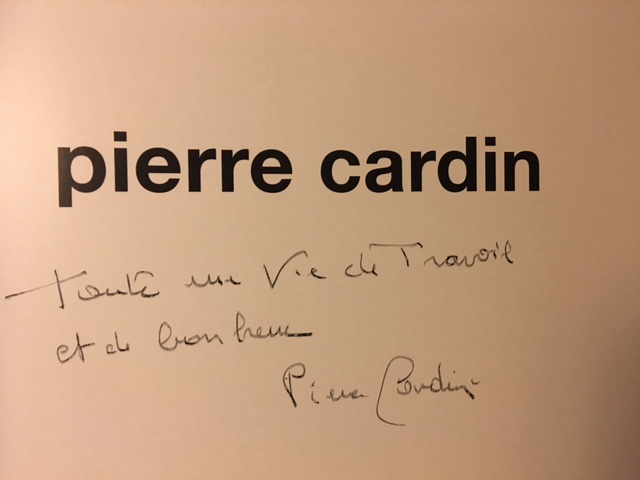 pierre cardin
Toute une Vie de Travail
et de bonheur
Pierre Cardin